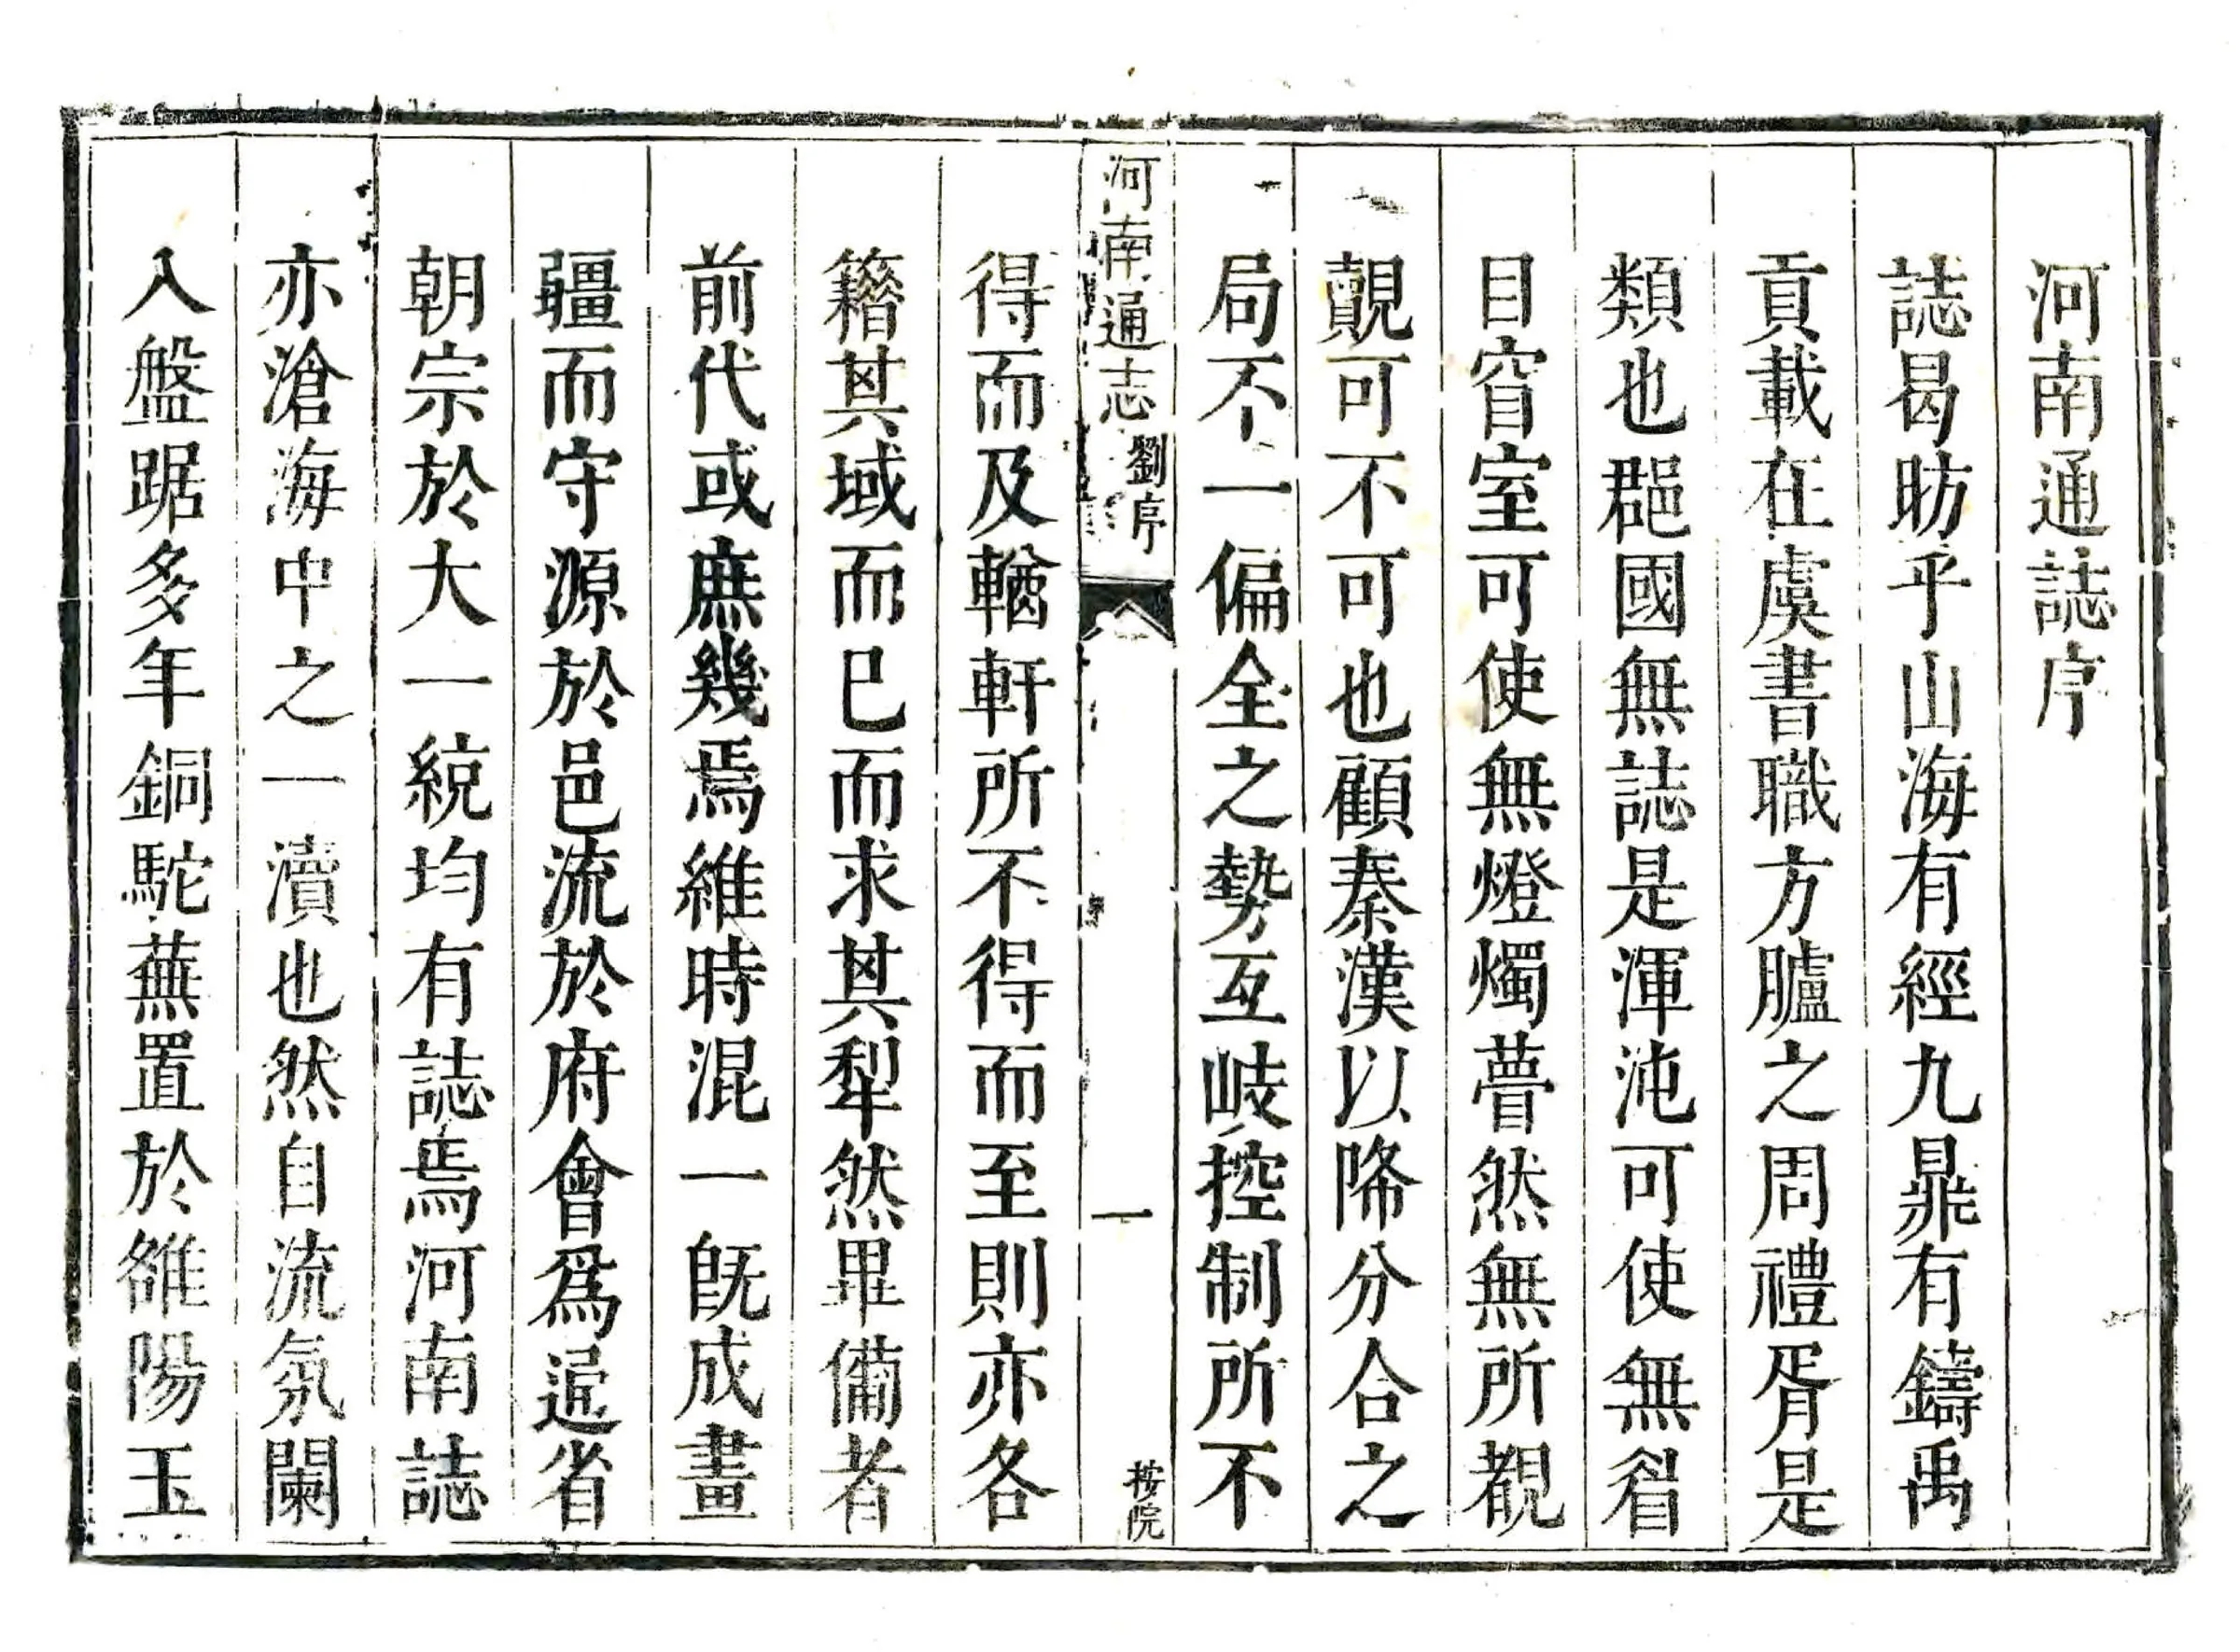 河南通誌序
誌曷昉乎山海有經九鼎有鑄禹
貢載在虞書職方臚之周禮胥是
類也郡國無誌是渾沌可使無眉
目窅室可使無燈燭瞢然無所覩
覿可不可也顧秦漢以降分合之
局不一偏全之勢互岐控制所不
河南通志 劉序 一 按院
得而及輶軒所不得而至則亦各
籍其域而已而求其犁然畢備者
前代或庶幾焉維時混一旣成畫
疆而守源於邑流於府會爲逼省
朝宗於大一統均有誌焉河南誌
亦滄海中之一瀆也然自流氛闌
入盤踞多年銅駝蕪置於雒陽玉